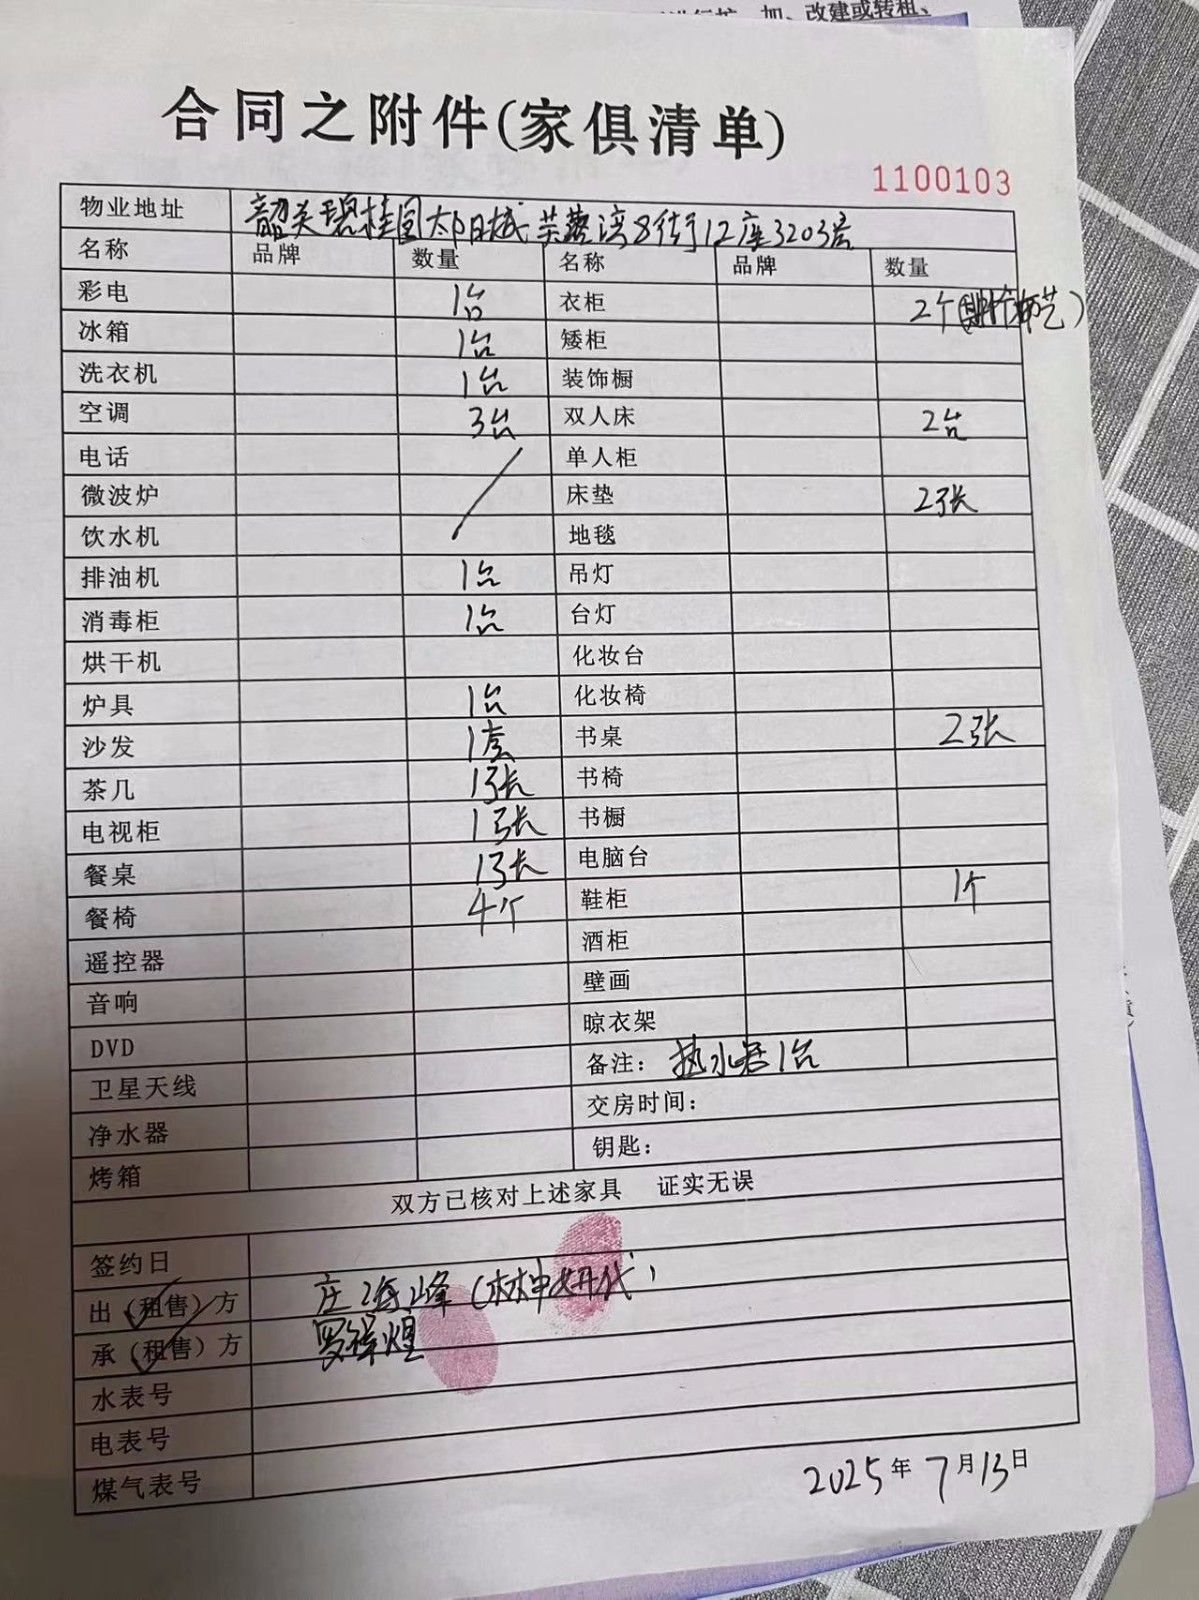 加、改建或转租、
合同之附件(家俱清单)
1100103
物业地址 韶关碧桂园太阳城芙蓉湾8街12座3203房
名称 品牌 数量 名称 品牌 数量
彩电 1台 衣柜 2个
冰箱 1台 矮柜
洗衣机 1台 装饰橱
空调 3台 双人床 2台
电话 单人柜
微波炉 床垫 2张
饮水机 地毯
排油机 1台 吊灯
消毒柜 1台 台灯
烘干机 化妆台
炉具 1台 化妆椅
沙发 1套 书桌 2张
茶几 1张 书椅
电视柜 1张 书橱
餐桌 1张 电脑台
餐椅 4个 鞋柜 1个
遥控器 酒柜
音响 壁画
DVD 晾衣架
卫星天线 备注: 热水器1台
净水器 交房时间:
烤箱 钥匙:
双方已核对上述家具 证实无误
签约日
出(租售)方 庄海峰(林坤妍代)
承(租售)方 罗锦煌
水表号
电表号
煤气表号
2025年7月13日